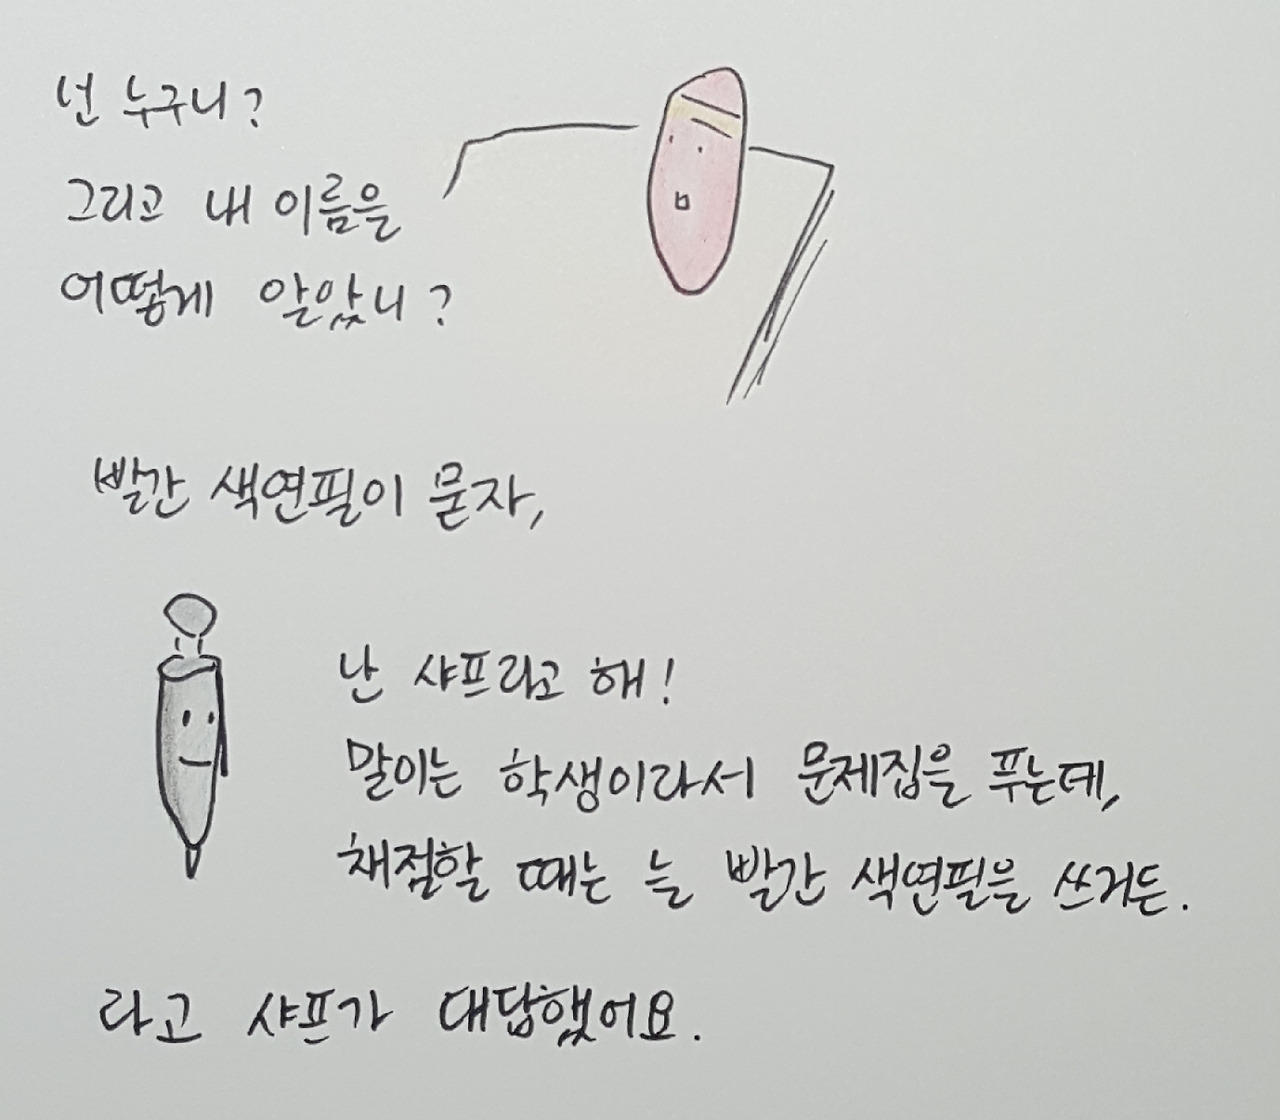 넌 누구니?
그리고 내 이름을
어떻게 알았니?
빨간 색연필이 묻자,
난 샤프라고 해!
말이는 학생이라서 문제집을 푸는데,
채점할 때는 늘 빨간 색연필을 쓰거든.
라고 샤프가 대답했어요.